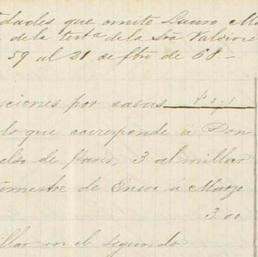 dades que omite Lauro M
de la testª de la Sra Valdivie
59 al 21 de fbro de 68 -
ciones por sacas
lo que corresponde a Don
de Paris, 3 al millar
trimestre de Enero a Marzo
3.00
llar en el segundo